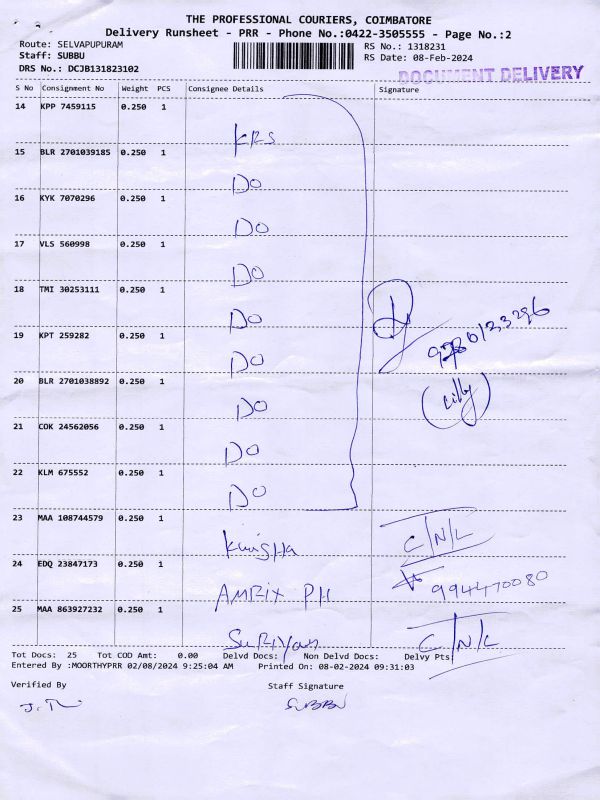 THE PROFESSIONAL COURIERS, COIMBATORE
Delivery Runsheet - PRR - Phone No.:0422-3505555 - Page No.:2
Route: SELVAPUPURAM
RS No.: 1318231
Staff: SUBBU
RS Date: 08-Feb-2024
DRS No.: DCJB131823102
DOCUMENT DELIVERY
S No Consignment No Weight PCS Consignee Details Signature
14 KPP 7459115 0.250 1
KRS
15 BLR 2701039185 0.250 1
DO
16 KYK 7070296 0.250 1
DO
17 VLS 560998 0.250 1
DO
18 TMI 30253111 0.250 1
DO
19 KPT 259282 0.250 1
DO
20 BLR 2701038892 0.250 1
DO
21 COK 24562056 0.250 1
DO
22 KLM 675552 0.250 1
DO
23 MAA 108744579 0.250 1
C/N/L
24 EDQ 23847173 0.250 1
AMRIX PH 994470080
25 MAA 863927232 0.250 1
SURIYAN C/N/L
Tot Docs: 25 Tot COD Amt: 0.00 Delvd Docs: Non Delvd Docs: Delvy Pts:
Entered By :MOORTHYPRR 02/08/2024 9:25:04 AM Printed On: 08-02-2024 09:31:03
Verified By Staff Signature
SUBBU